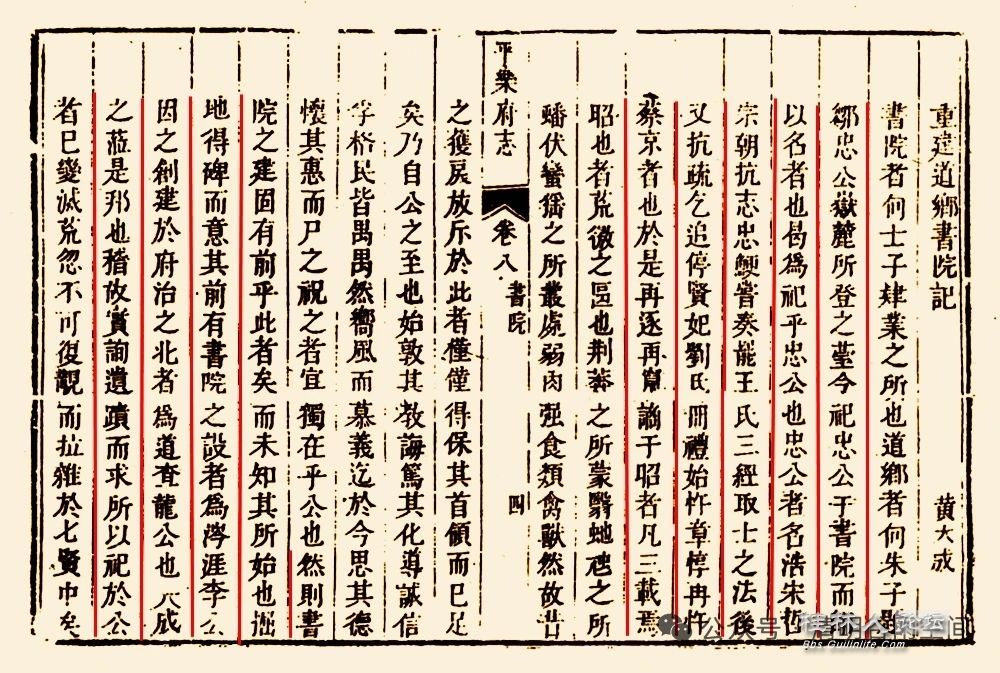 重建道鄉書院記
黃大成
書院者何士子肄業之所也道鄉者何朱子題
鄒忠公嶽麓所登之臺今祀忠公于書院而
以名者也曷爲祀乎忠公也忠公者名浩宋哲
宗朝抗志忠鯁嘗奏罷王氏三經取士之法後
又抗疏乞追停賢妃劉氏冊禮始忤章惇再忤
蔡京者也於是再逐再竄謫于昭者凡三載焉
昭也者荒徼之區也荆莽之所蒙翳虵虺之所
蟠伏蠻猺之所叢處弱肉强食類禽獸然故昔
平樂府志
卷八
書院
四
之獲戾放斥於此者僅僅得保其首領而已足
矣乃自公之至也始敦其教誨篤其化導誠信
孚格民皆禺禺然嚮風而慕義迄於今思其德
懷其惠而尸之祝之者宜獨在乎公也然則書
院之建固有前乎此者矣而未知其所始也掘
地得碑而意其前有書院之設者爲滹涯李公
因之創建於府治之北者爲道夯龍公也大成
之蒞是邦也稽故實詢遺蹟而求所以祀於公
者已變滅荒忽不可復覩而拉雜於七賢中矣
公众号
桂林人论坛
Bbs.Guilinlife.Com